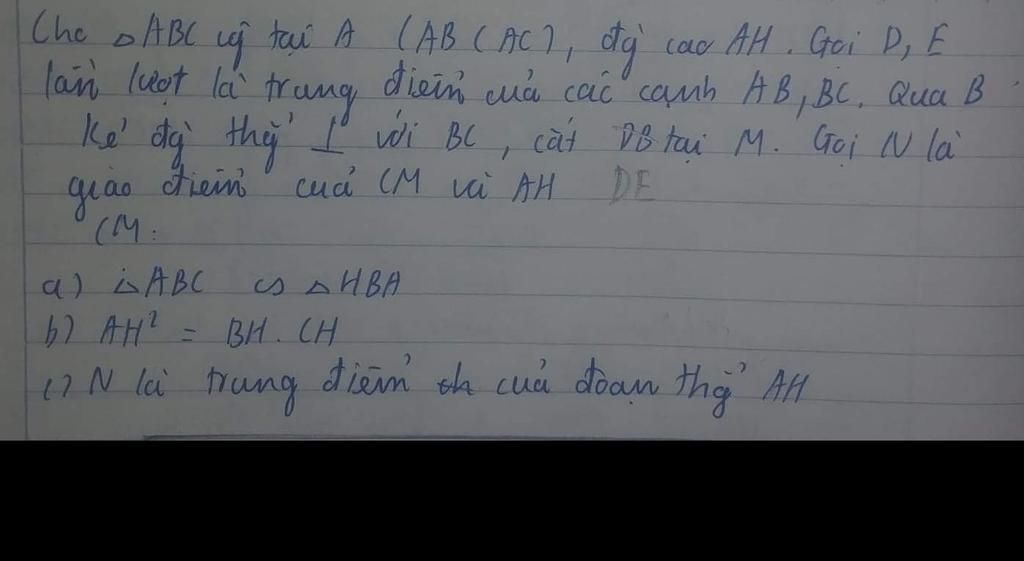 Cho △ABC vg̃ tại A (AB < AC), đg̀ cao AH. Gọi D, E
lần lượt là trung điểm của các cạnh AB, BC. Qua B
Kẻ đg̀ thg̉ ⊥ với BC, cắt DB tại M. Gọi N là
giao điểm của CM và AH DE
CM:
a) △ABC ∽ △HBA
b) AH² = BH. CH
c) N là trung điểm của đoạn thg̉ AH